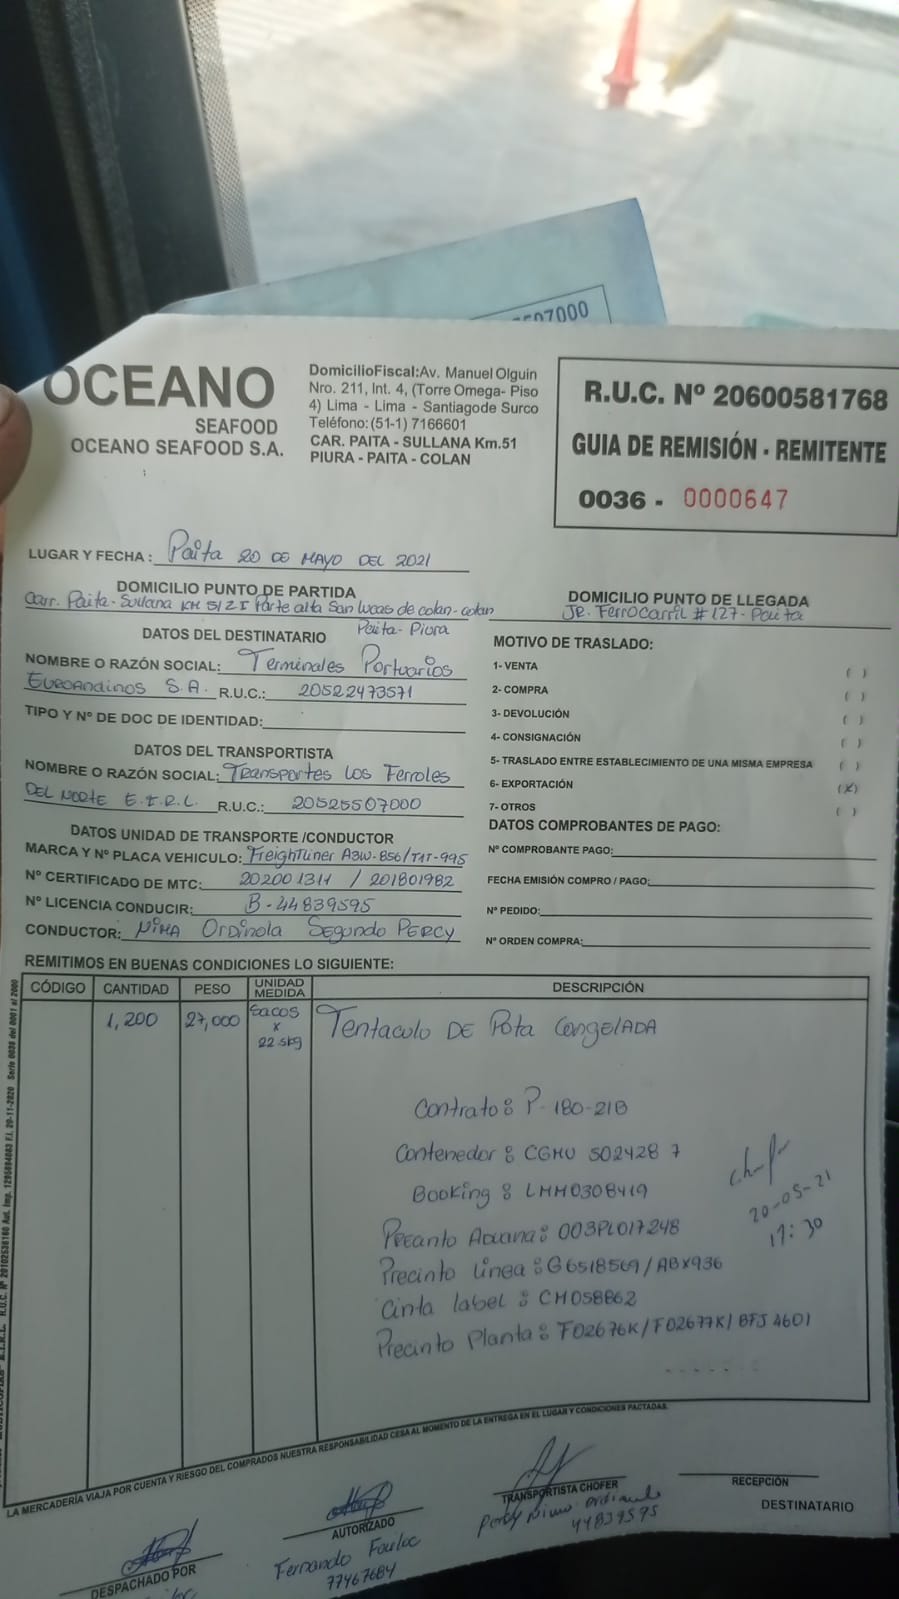 507000
OCEANO
SEAFOOD
OCEANO SEAFOOD S.A.
DomicilioFiscal:Av. Manuel Olguin
Nro. 211, Int. 4, (Torre Omega- Piso
4) Lima - Lima - Santiagode Surco
Teléfono:(51-1) 7166601
CAR. PAITA - SULLANA Km.51
PIURA - PAITA - COLAN
R.U.C. Nº 20600581768
GUIA DE REMISIÓN - REMITENTE
0036 - 0000647
LUGAR Y FECHA : Paita 20 DE MAYO DEL 2021
DOMICILIO PUNTO DE PARTIDA
Carr. Paita-Sullana KM 51 Z I Parte alta San Lucas de colan-colan
Paita-Piura
DOMICILIO PUNTO DE LLEGADA
Jr. Ferrocarril # 127-Paita
DATOS DEL DESTINATARIO
NOMBRE O RAZÓN SOCIAL: Terminales Portuarios
Euroandinos S.A. R.U.C.: 20522473571
TIPO Y Nº DE DOC DE IDENTIDAD:
DATOS DEL TRANSPORTISTA
NOMBRE O RAZÓN SOCIAL: Transportes Los Ferroles
DEL NORTE E.I.R.L. R.U.C.: 20525507000
DATOS UNIDAD DE TRANSPORTE /CONDUCTOR
MARCA Y Nº PLACA VEHICULO: Freightliner A3W-856/TAT-995
Nº CERTIFICADO DE MTC: 202001311 / 201801982
Nº LICENCIA CONDUCIR: B-44839595
CONDUCTOR: NIMA Ordinola Segundo PERCY
MOTIVO DE TRASLADO:
1- VENTA ( )
2- COMPRA ( )
3- DEVOLUCIÓN ( )
4- CONSIGNACIÓN ( )
5- TRASLADO ENTRE ESTABLECIMIENTO DE UNA MISMA EMPRESA ( )
6- EXPORTACIÓN (X)
7- OTROS ( )
DATOS COMPROBANTES DE PAGO:
Nº COMPROBANTE PAGO:
FECHA EMISIÓN COMPRO / PAGO:
Nº PEDIDO:
Nº ORDEN COMPRA:
REMITIMOS EN BUENAS CONDICIONES LO SIGUIENTE:
CÓDIGO CANTIDAD PESO UNIDAD MEDIDA DESCRIPCIÓN
1,200 27,000 Sacos x 22.5kg Tentaculo DE Pota CongelADA
Contrato: P-180-21B
Contenedor: CGMU 502428 7
Booking: LMM0308419
Precinto Aduana: 003PL017248
Precinto Linea: G6518569/ABX936
Cinta label: CM058862
Precinto Planta: F02676K/F02677K/BFJ4601
20-05-21
17:30
Serie 0036 del 0001 al 2000
LA MERCADERÍA VIAJA POR CUENTA Y RIESGO DEL COMPRADOS NUESTRA RESPONSABILIDAD CESA AL MOMENTO DE LA ENTREGA EN EL LUGAR Y CONDICIONES PACTADAS.
DESPACHADO POR
AUTORIZADO
Fernando
77467684
TRANSPORTISTA CHOFER
Percy Nima Ordinola
44839595
RECEPCIÓN
DESTINATARIO